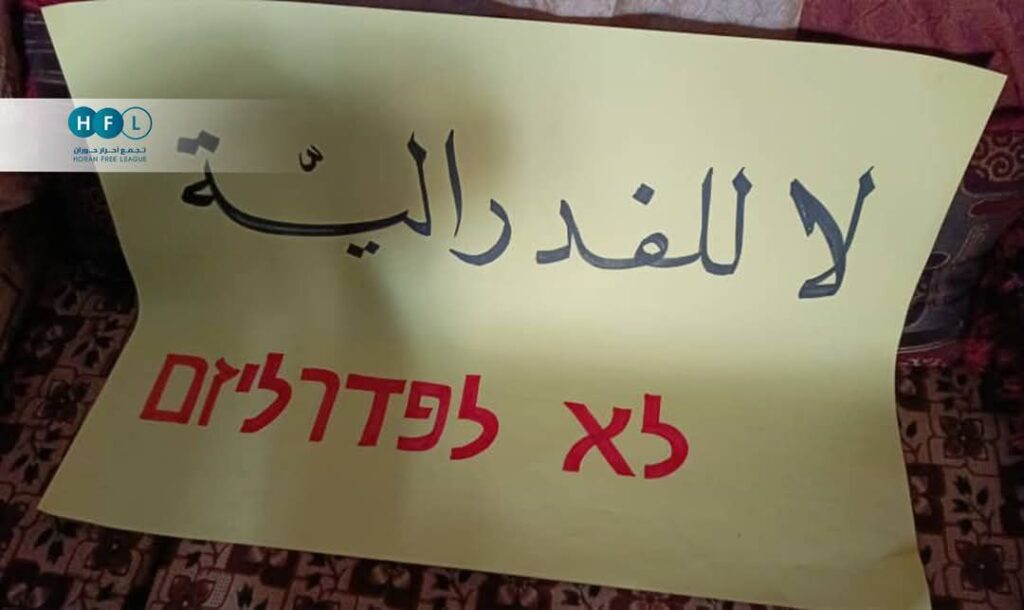 HFL
تجمع أحرار حوران
HORAN FREE LEAGUE
لا للفدراليّة
לא לפדרליזם